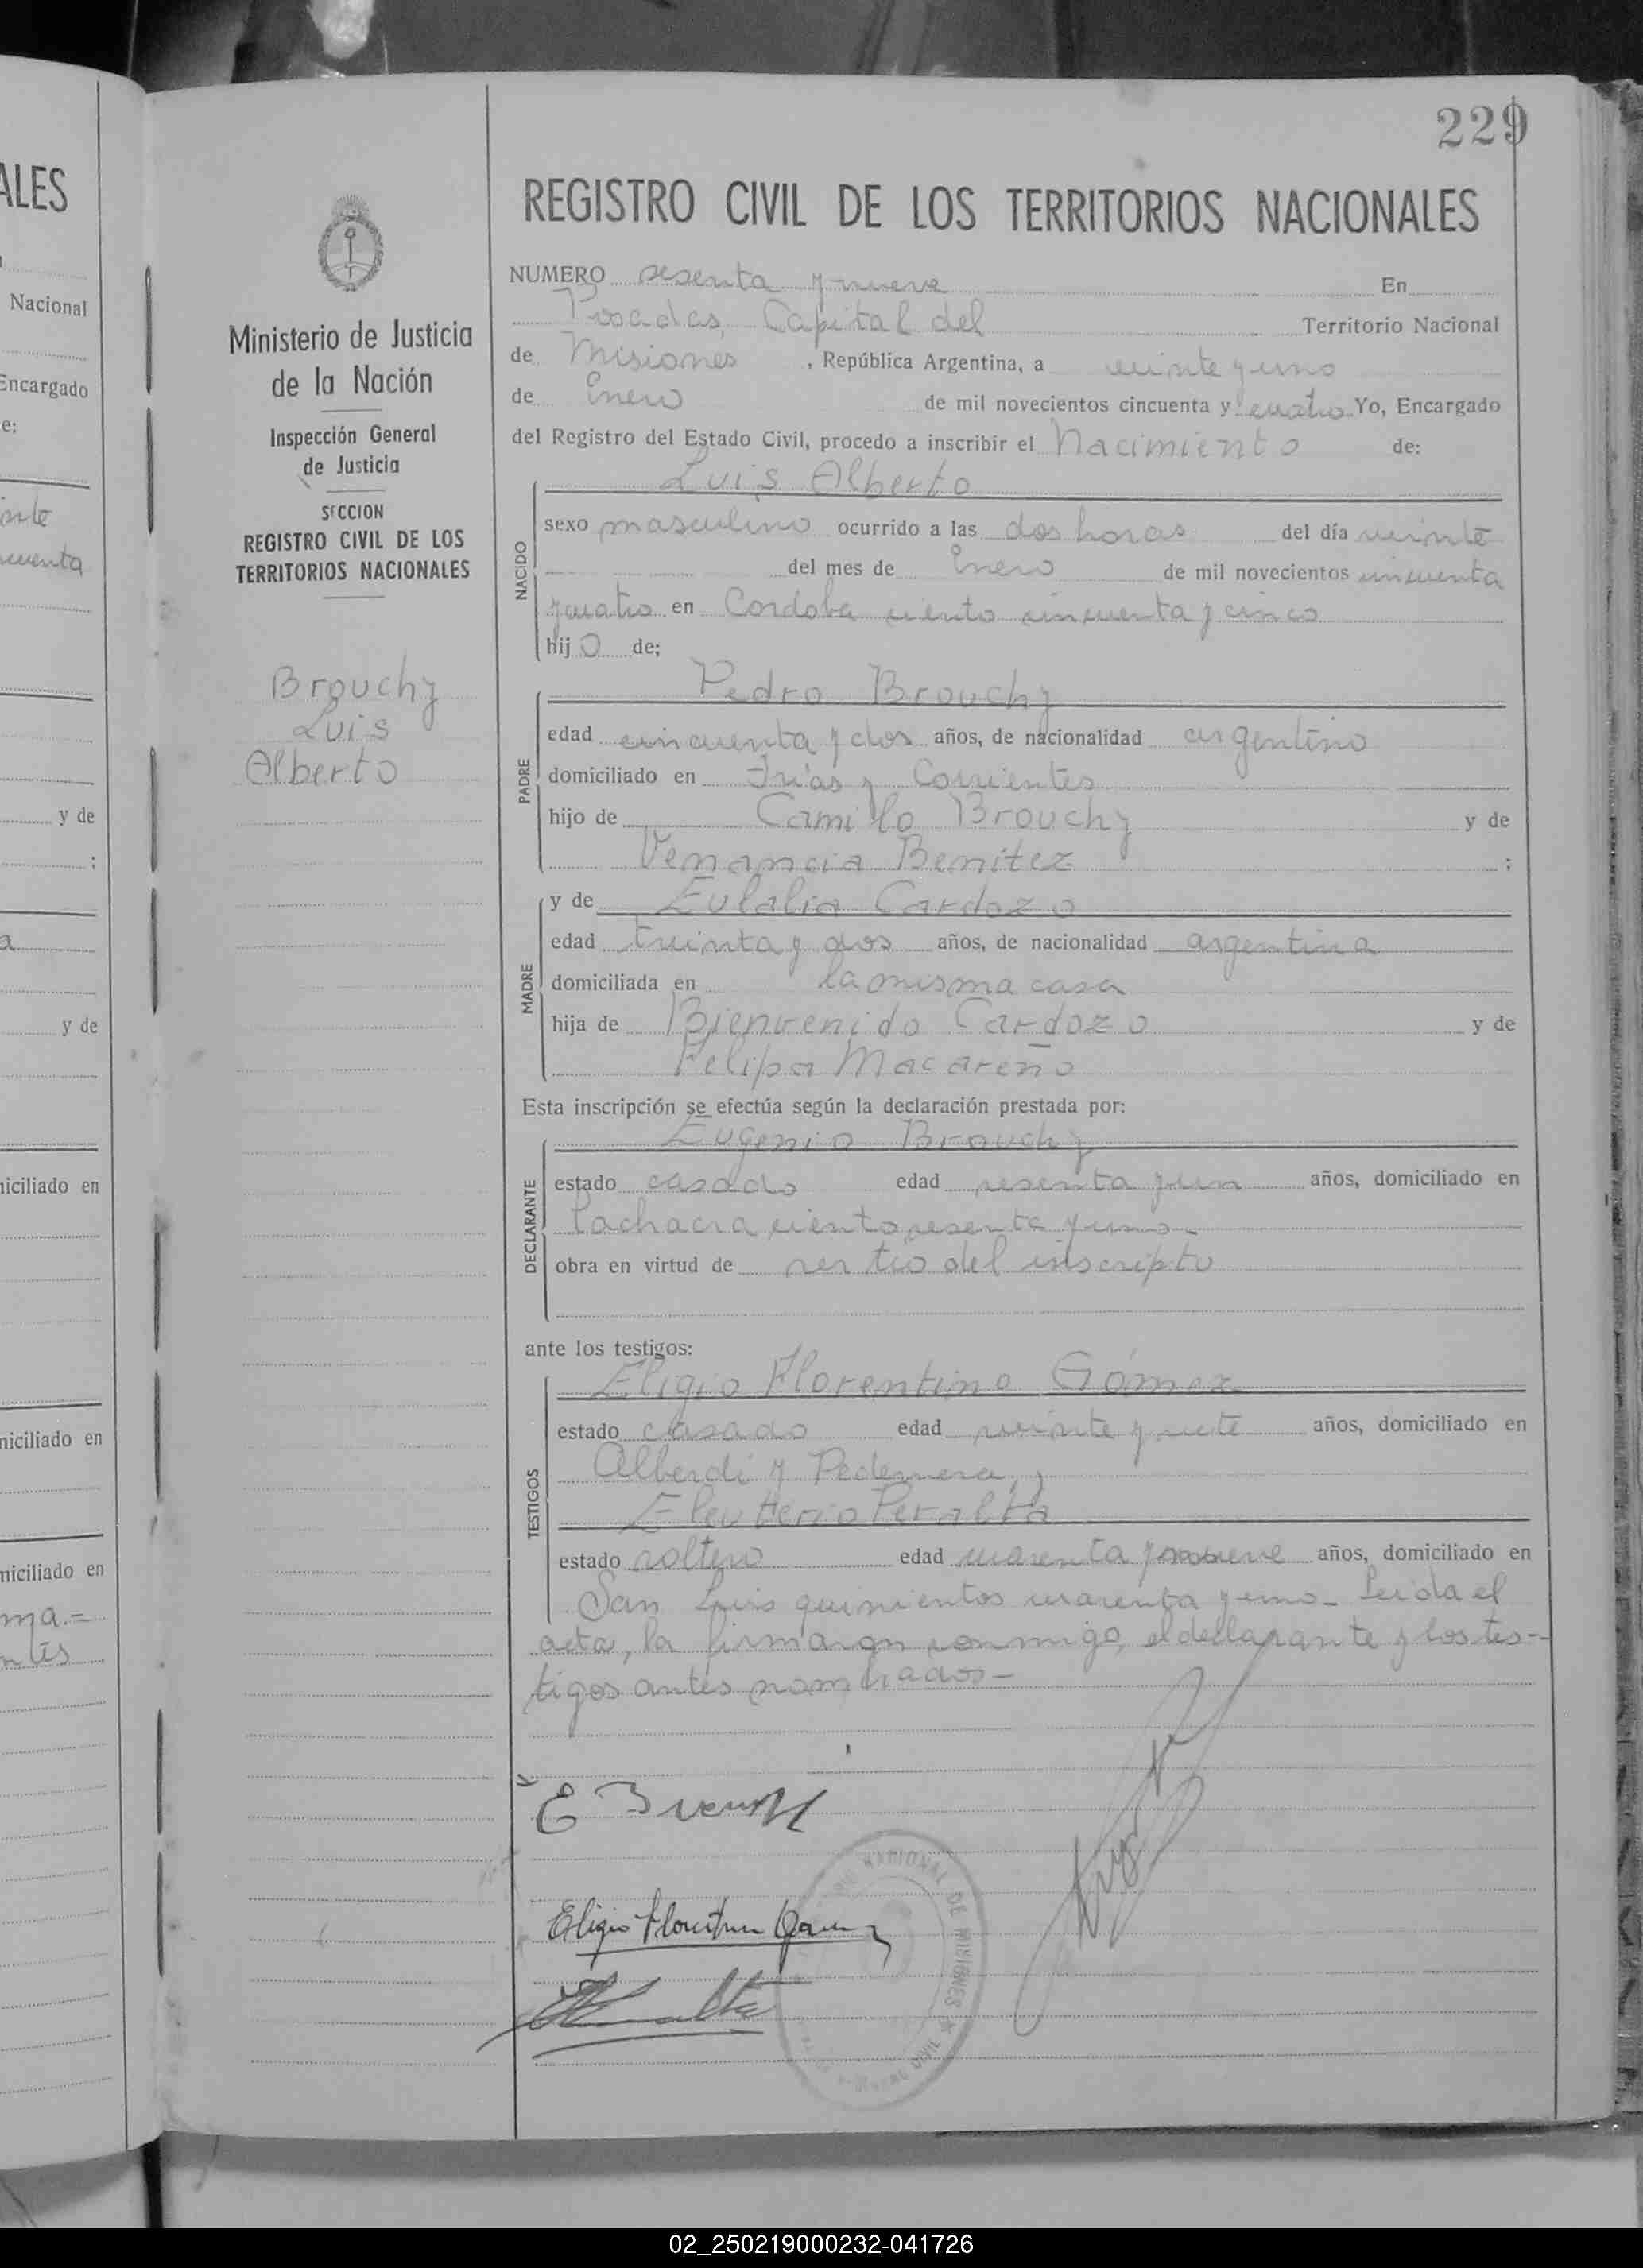 229
REGISTRO CIVIL DE LOS TERRITORIOS NACIONALES
NUMERO sesenta y nueve En
Posadas, Capital del Territorio Nacional
de Misiones, República Argentina, a veinte y uno
de Enero de mil novecientos cincuenta y cuatro Yo, Encargado
del Registro del Estado Civil, procedo a inscribir el Nacimiento de:
Luis Alberto
NACIDO
sexo masculino ocurrido a las dos horas del día veinte
del mes de Enero de mil novecientos cincuenta
y cuatro en Cordoba ciento cincuenta y cinco
hij o de;
Pedro Brouchy
PADRE
edad cincuenta y dos años, de nacionalidad argentino
domiciliado en Frías y Corrientes
hijo de Camilo Brouchy y de
Venancia Benitez ;
MADRE
y de Eulalia Cardozo
edad treinta y dos años, de nacionalidad argentina
domiciliada en la misma casa
hija de Bienvenido Cardozo y de
Felipa Macareño
Esta inscripción se efectúa según la declaración prestada por:
Eugenio Brouchy
DECLARANTE
estado casado edad sesenta y un años, domiciliado en
ciento sesenta y uno-
obra en virtud de ser tio del inscripto
ante los testigos:
Eligio Florentino Gómez
TESTIGOS
estado casado edad veinte y siete años, domiciliado en
Alberdi y Pedernera, y
Eleuterio Peralta
estado soltero edad cuarenta y nueve años, domiciliado en
San Luis quinientos cuarenta y uno- Leida el
acta, la firmaron conmigo, el declarante y los tes-
tigos antes nombrados-
Eligio Florentino Gomez
NACIONAL DE MISIONES
CIVIL
Ministerio de Justicia
de la Nación
Inspección General
de Justicia
SECCION
REGISTRO CIVIL DE LOS
TERRITORIOS NACIONALES
Brouchy
Luis
Alberto
ALES
Nacional
Encargado
e:
y de
;
a
y de
iciliado en
niciliado en
niciliado en
ma.=
02_250219000232-041726